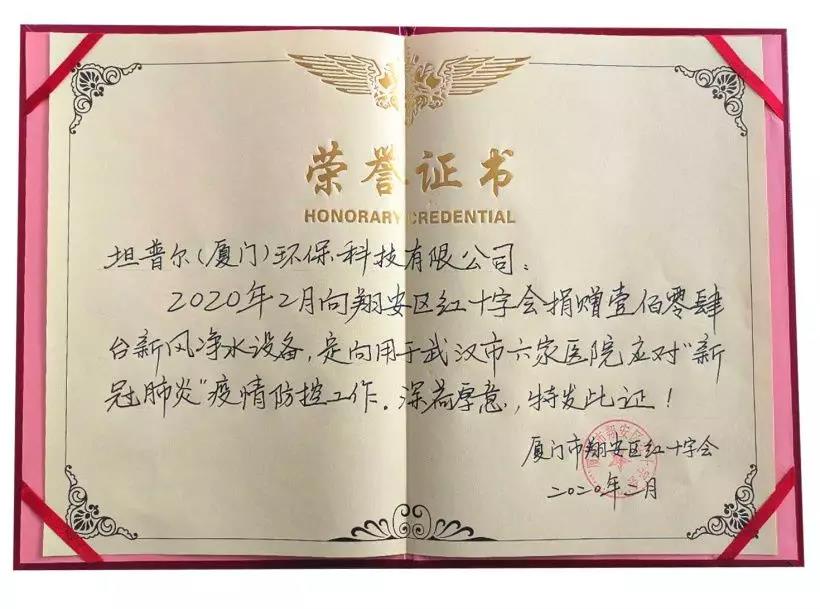 荣誉证书
HONORARY CREDENTIAL
坦普尔(厦门)环保科技有限公司:
2020年2月向翔安区红十字会捐赠壹佰零肆
台新风净水设备,定向用于武汉市六家医院应对"新
冠肺炎"疫情防控工作。深荷厚意,特发此证!
厦门市翔安区红十字会
二〇二〇年二月